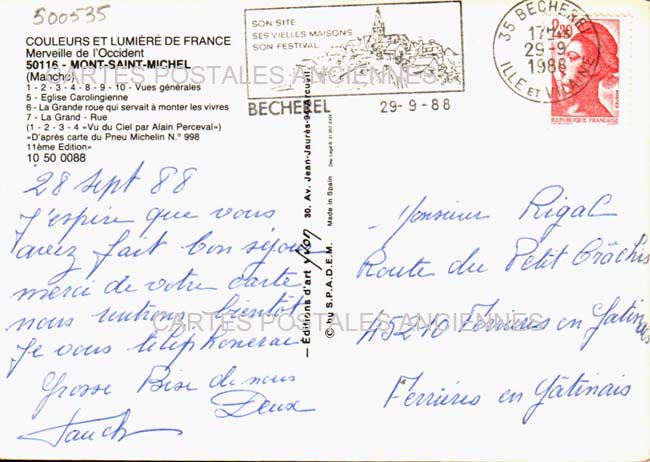 500535
COULEURS ET LUMIÈRE DE FRANCE
Merveille de l'Occident
50116 - MONT-SAINT-MICHEL
(Manche)
1 - 2 - 3 - 4 - 8 - 9 - 10 - Vues générales
5 - Eglise Carolingienne
6 - La Grande roue qui servait à monter les vivres
7 - La Grand - Rue
(1 - 2 - 3 - 4 «Vu du Ciel par Alain Perceval»)
«D'après carte du Pneu Michelin N.º 998
11ème Edition»
10 50 0088
SON SITE
SES VIELLES MAISONS
SON FESTIVAL
BECHEREL 29-9-88
35 BECHEREL
17H45
29-9
1988
ILLE ET VILAINE
2,20
REPUBLIQUE FRANÇAISE
POSTES
CARTES POSTALES ANCIENNES
28 Sept 88
J'espère que vous
avez fait bon séjour
merci de votre carte
nous rentrons bientôt
Je vous téléphonerai
Grosse Bise de nous
Deux
— Éditions d'art yvon 30, Av. Jean-Jaurès-94-Arcueil
Made in Spain
© by S.P.A.D.E.M.
Monsieur Rigal
Route du Petit Crâchis
45210 Ferrières en Gatinais
Ferrières en Gâtinais
CARTES POSTALES ANCIENNES